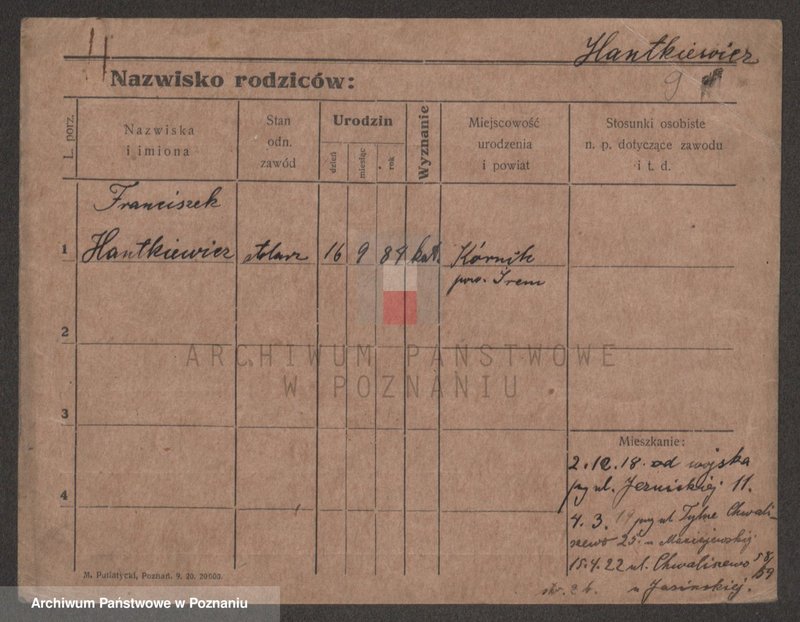 Hantkiewicz
9
Nazwisko rodziców:
L. porz.
Nazwiska
i imiona
Stan
odn.
zawód
Urodzin
dzień
miesiąc
rok
Wyznanie
Miejscowość
urodzenia
i powiat
Stosunki osobiste
n. p. dotyczące zawodu
i t. d.
1
Franciszek
Hantkiewicz
stolarz
16
9
84
kat.
Kórnik
pow. Śrem
2
ARCHIWUM PAŃSTWOWE
W POZNANIU
3
4
Mieszkanie:
2.12.18. od wojska
przy ul. Jezuickiej 11.
4. 3. 19 przy ul Tylne Chwali-
szewo 25. u Maciejewskij
15.4.22 ul. Chwaliszewo 58/59
u Jasińskiej.
M. Putiatycki, Poznań. 9. 20. 20000.
Archiwum Państwowe w Poznaniu